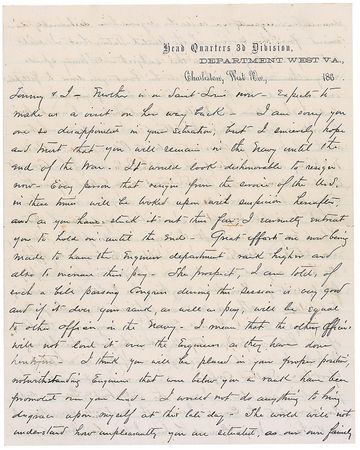 Head Quarters 3d Division,
DEPARTMENT WEST VA.,
Charleston, West Va., 186
& I - is in Saint Louis now - Expects to
make us a visit on her way back - I am sorry you
are so disappointed in your situation, but I sincerely hope
and trust that you will remain in the Navy until the
end of the War. It would look dishonorable to resign
now - Every person that resigns from the service of the U.S.
in these times will be looked upon with suspicion hereafter,
and as you have stuck it out thus far, I earnestly entreat
you to hold on until the end - Great efforts are now being
made to have the Engineer department rank higher and
also to increase their pay - The prospect, I am told, of
such a bill passing Congress during this session is very good
and if it does your rank, as well as pay, will be equal
to other officers in the Navy - I mean that the other officers
will not lord it over the Engineers as they have done
heretofore - I think you will be placed in your proper position,
notwithstanding Engineers that were below you in rank have been
promoted over your head - I would not do anything to bring
disgrace upon myself at this late day - The world will not
understand how unpleasantly you are situated, as our own family